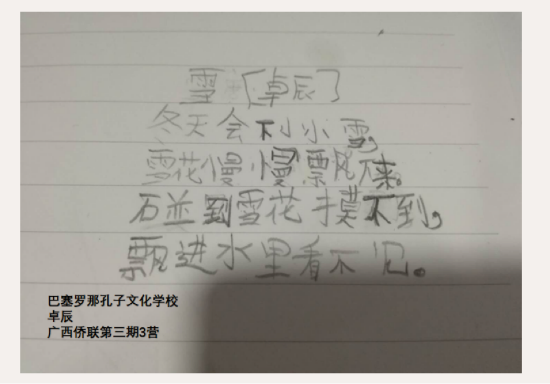 雪〔卓辰〕
冬天会下小小雪，
雪花慢慢飘下来。
碰到雪花摸不到，
飘进水里看不见。
巴塞罗那孔子文化学校
卓辰
广西侨联第三期3营